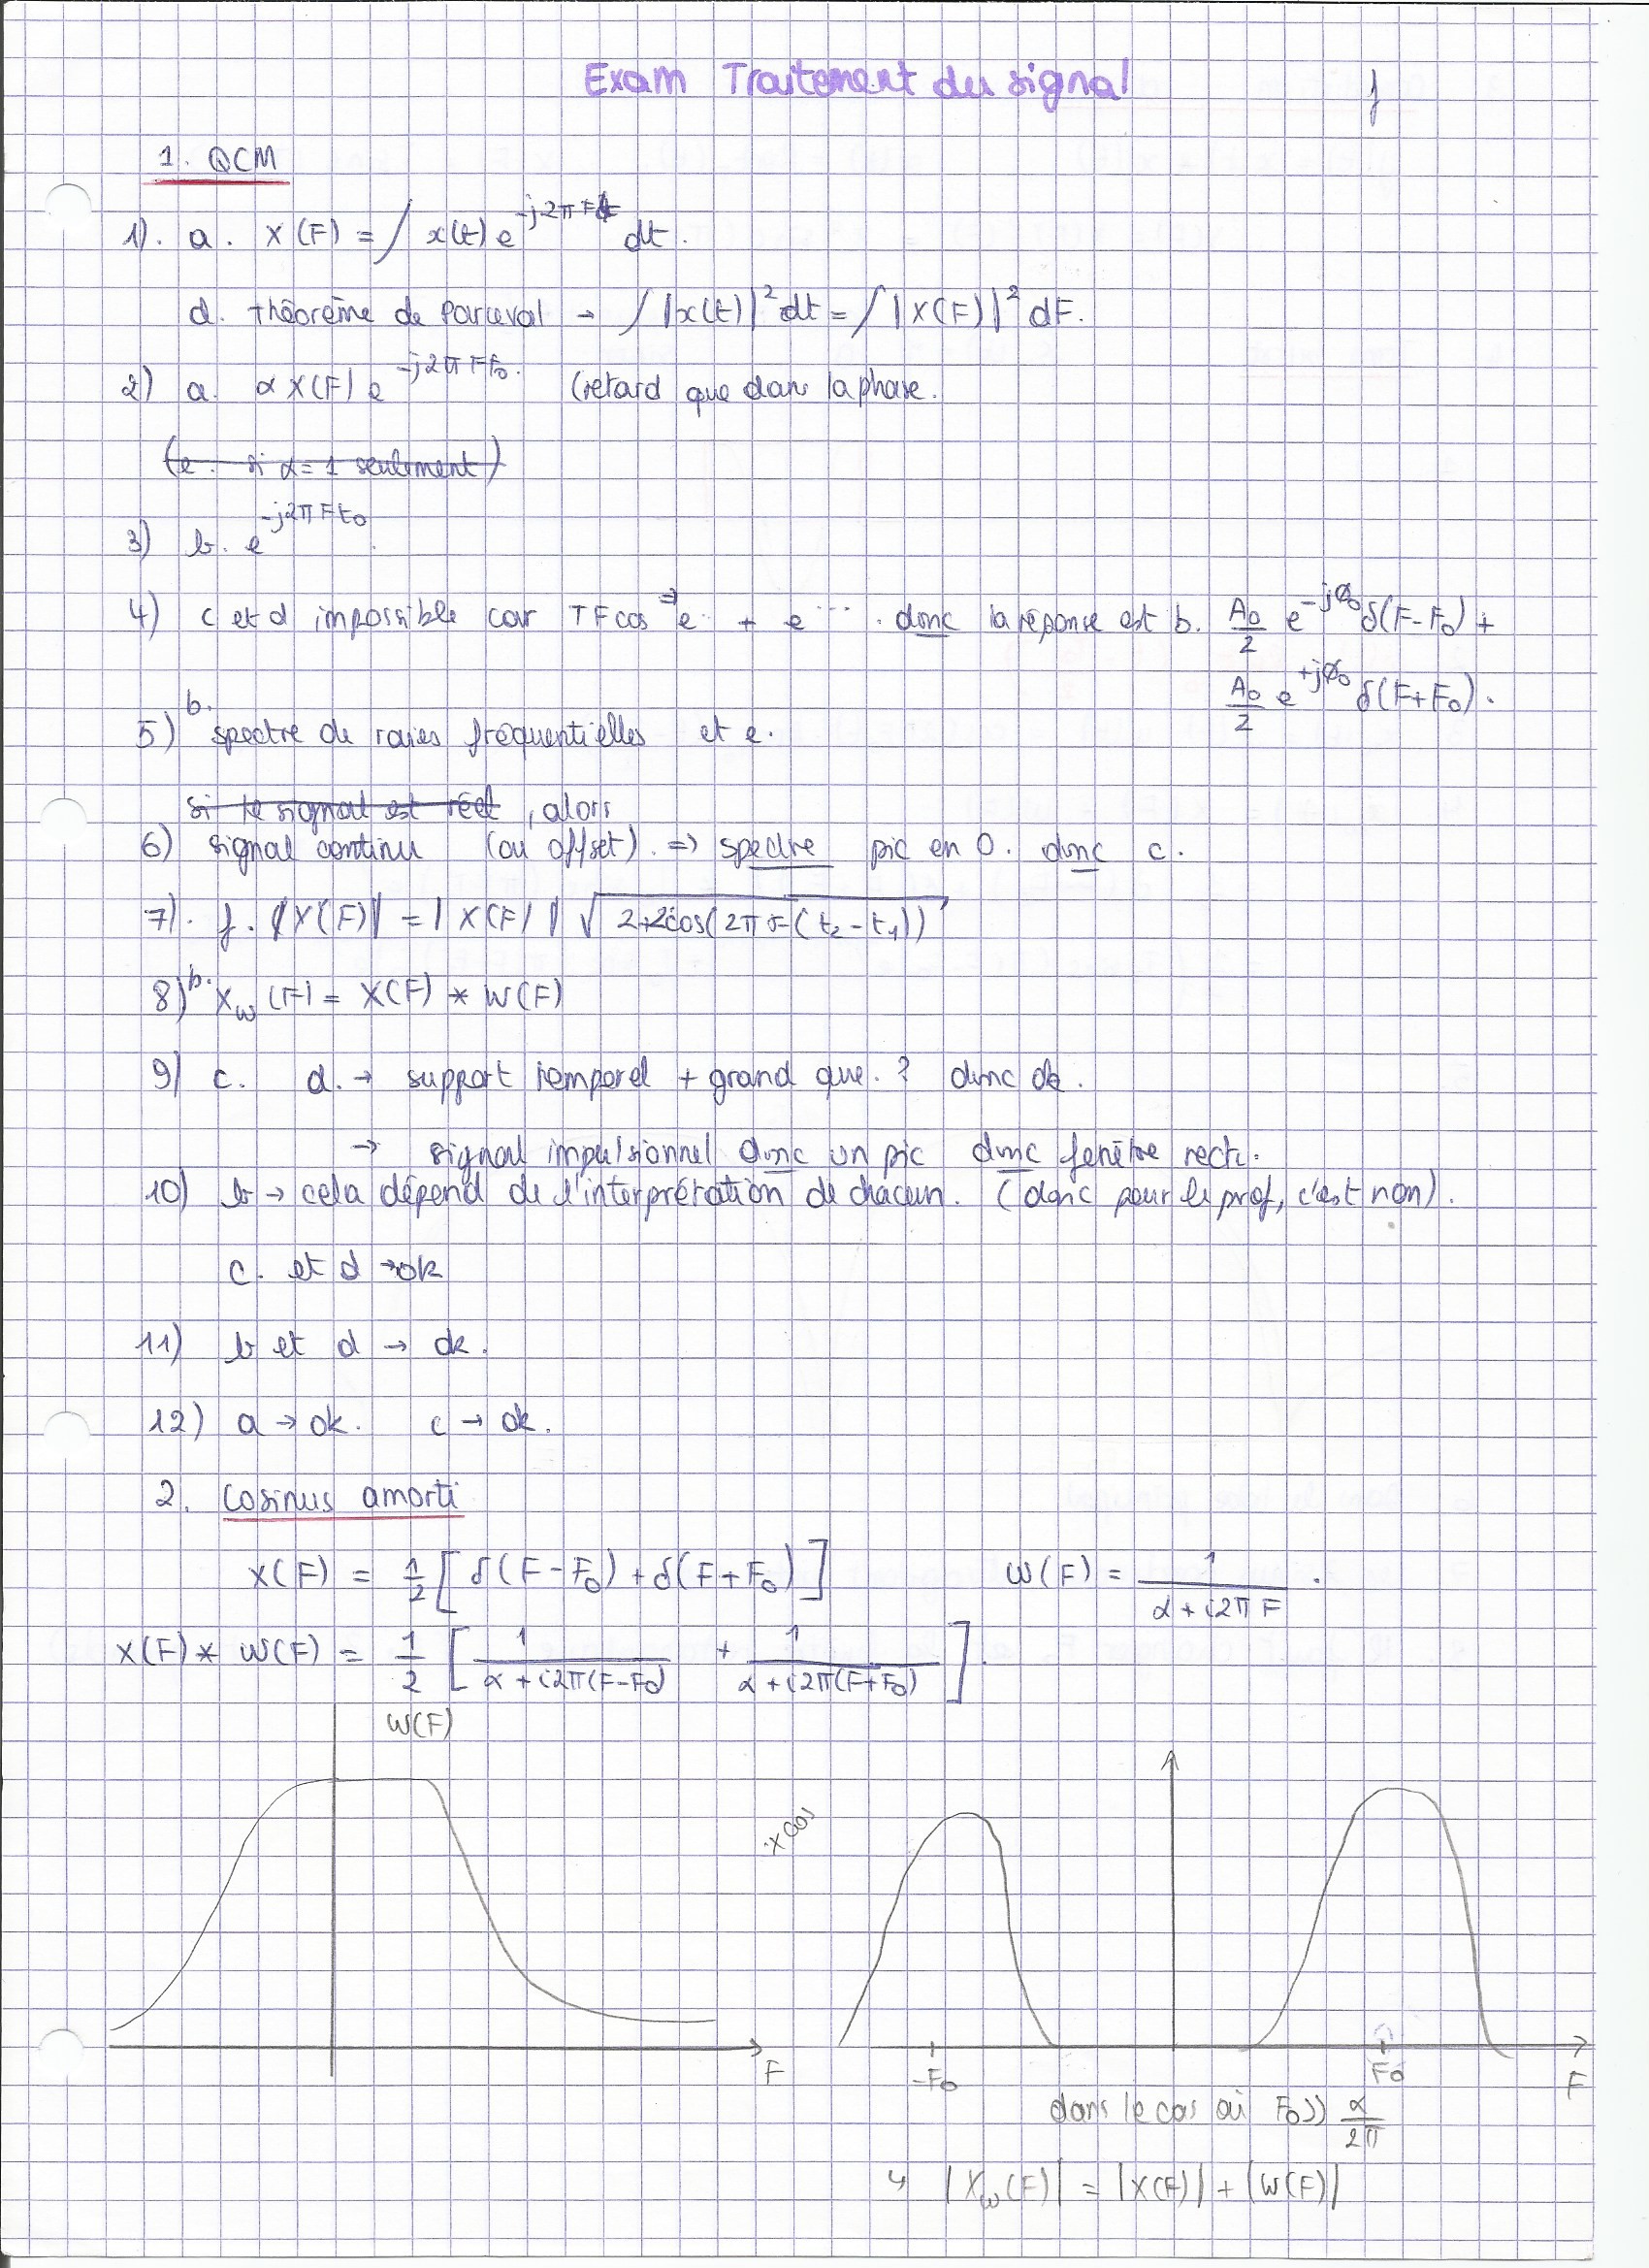 Exam Traitement du signal
1. QCM
1). a. X(F) = ∫ x(t) e^{-j2πFt} dt.
d. théorème de Parceval → ∫ |x(t)|² dt = ∫ |X(F)|² dF.
2) a. α X(F) e^{-j2πFF₀}. (retard que dans la phase.
(e. si α = 1 seulement)
3) b. e^{-j2πFt₀}
4) c et d impossible car TF cos ⇒ e·· + e···. donc la réponse est b. A₀/2 e^{-jφ₀} δ(F-F₀) +
A₀/2 e^{+jφ₀} δ(F+F₀).
b.
5) spectre de raies fréquentielles et e.
si le signal est réel, alors
6) signal continu (ou offset). ⇒ spectre pic en 0. donc c.
7). f. |Y(F)| = |X(F)| √(2+2cos(2πF(t₂-t₁)))
8) b. X_w(F) = X(F) * W(F)
9) c. d. → support temporel + grand que. ? donc ok.
→ signal impulsionnel donc un pic donc fenêtre rect.
10) b → cela dépend de l'interprétation de chacun. (donc pour le prof, c'est non).
c. et d → ok
11) b et d → ok.
12) a → ok. c → ok.
2. Cosinus amorti
X(F) = 1/2 [δ(F-F₀) + δ(F+F₀)] W(F) = 1/(α+i2πF).
X(F) * W(F) = 1/2 [1/(α+i2π(F-F₀)) + 1/(α+i2π(F+F₀))].
W(F)
F
-F₀ F₀ F
dans le cas où F₀ >> α/2π
↳ |X_w(F)| = |X(F)| + |W(F)|